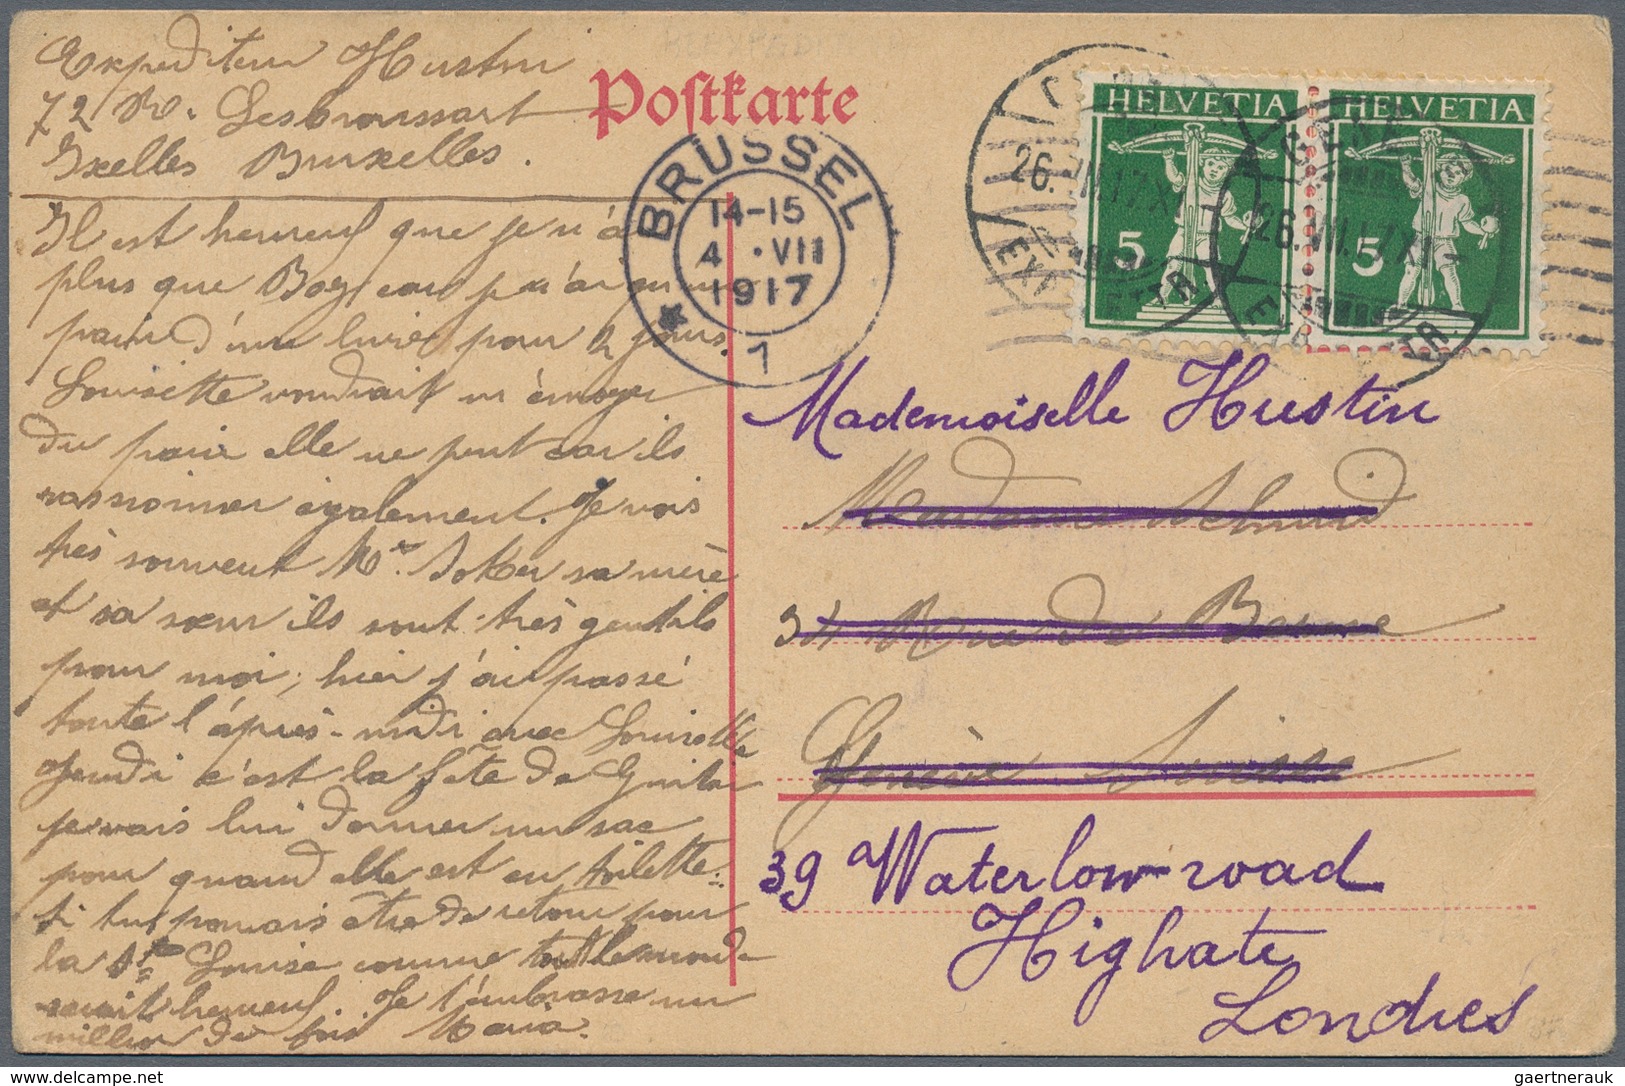 Expediteur Hustin
72 R. Lesbroussart
Ixelles Bruxelles.
Postkarte
BRÜSSEL
14-15
4.VII
1917
1
HELVETIA
HELVETIA
5
5
26.VII.17.XI-
26.VII.17.XI-
EXP. LETTR.
Il est heureux que je n'ai
plus que Boy car je n'ai qu'un
pain d'une livre pour 2 jours.
Louisette voudrait m'envoyer
du pain elle ne peut car ils
rassionner également. Je vois
très souvent Mr. Joker sa mère
et sa sœur ils sont très gentils
pour moi; hier j'ai passé
toute l'après-midi avec Louisette
Jeudi c'est la fête de
je vais lui donner un sac
pour quand elle est en toilette.
si tu pouvais être de retour pour
la Ste Louise comme tout le monde
serait heureux. Je t'embrasse un
million de fois Maria.
Mademoiselle Hustin
Madame
34 Rue de Berne
Genève Suisse
39 Waterlow road
Highate
Londres
gaertnerauk